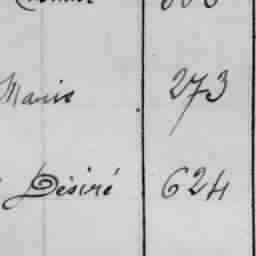 Marie 273
Désiré 624